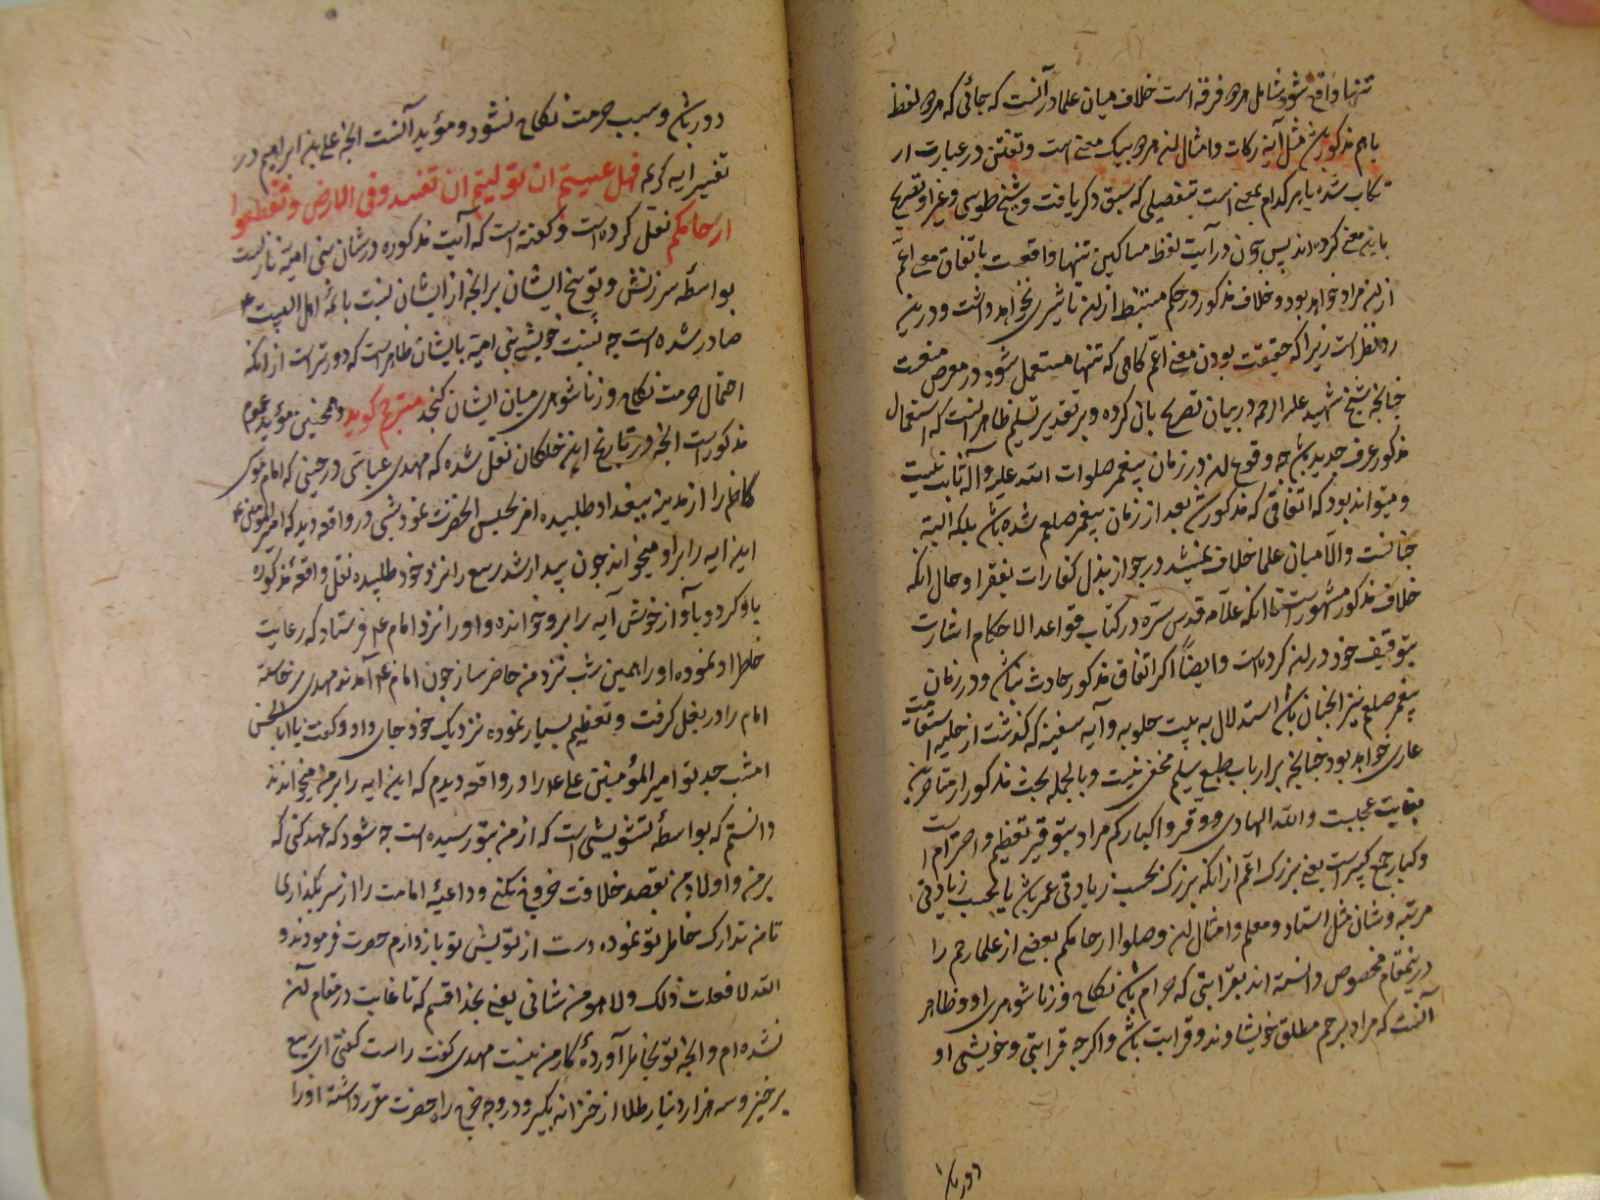 تنها واقع شود شامل هر دو فرقه است خلاف میان علما در آنست که جائی که هر دو لفظ
باهم مذکور باشد مثل آیه زکات و امثال ان هر دو بیک معنی است و تفنن در عبارت ار
تکاب شده یا هر کدام بمعنی است بتفصیلی که سبق ذکر یافت و شیخ طوسی و غیر او تصریح
باین معنی کرده اند پس چون در آیت لفظ مساکین تنها واقعست باتفاق معنی اعم
از ان مراد خواهد بود و خلاف مذکور در حکم مستنبط از ان تاثیری نخواهد داشت و درین
رد نظر است زیرا که حقیقت بودن معنی اعم کاهی که تنها مستعمل شود در معرض منعست
چنانچه شیخ شهید علیه الرحمه در بیان تصریح بان کرده و بر تقدیر تسلیم ظاهر انست که استعمال
مذکور عرف جدید باشد چه وقوع ان در زمان پیغمبر صلوات الله علیه و آله ثابت نیست
و میتواند بود که اتفاقی که مذکور شد بعد از زمان پیغمبر صلعم شده باشد بلکه البته
چنانست والا میان علما خلاف نمیشد در جواز بذل کفارات بفقرا و حال انکه
خلاف مذکور مشهور است تا انکه علامه قدس سره در کتاب قواعد الاحکام اشارت
بتوقف خود در ان کرده است و ایضا اکر اتفاق مذکور حادث نباشد و در زمان
پیغمبر صلعم نیز انچنان باشد استدلال به بیت حلوبه و آیه سفینه که کذشت از حلیه استقامت
عاری خواهد بود چنانچه بر ارباب طبع سلیم مخفی نیست و بالجمله بحث مذکور از متاخرین
بغایت عجیبست والله الهادی و وقروا کبارکم مراد بتوقیر تعظیم و احترام است
و کبار جمع کبیر است یعنی بزرک اعم از انکه بزرک بحسب زیادتی عمر باشد یا بحسب زیادتی
مرتبه و شان مثل استاد و معلم و امثال ان وصلوا ارحامکم بعضی از علما رحم را
درینمقام مخصوص دانسته اند بقرابتی که حرام باشد نکاح و زناشوهری او و ظاهر
آنست که مراد برحم مطلق خویشاوند و قرابت باشد و اکرچه قرابتی و خویشی او
دور باشد
دور باشد و سبب حرمت نکاح نشود و مؤید آنست انچه علی بن ابراهیم در
تفسیر ایه کریمه فهل عسیتم ان تولیتم ان تفسدوا فی الارض و تقطعوا
ارحامکم نقل کرده است و کفته است که آیت مذکوره در شان بنی امیه نازلست
بواسطه سرزنش و توبیخ ایشان بر انچه از ایشان نسبت بائمه اهل البیت ع
صادر شده است چه نسبت خویشی بنی امیه بایشان ظاهر است که دورتر است از انکه
احتمال حرمت نکاح و زناشوهری میان ایشان کنجد مترجم کوید و همچنین مؤید عموم
مذکور است انچه در تاریخ ابن خلکان نقل شده که مهدی عباسی در حینی که امام موسی
کاظم را از مدینه ببغداد طلبیده امر بحبس انحضرت نمود شبی در واقعه دید که امیر المؤمنین ع
این ایه را بر او میخواند چون بیدار شد ربیع را نزد خود طلبیده نقل واقعه مذکوره
باو کرد و بآواز خوش آیه را برو خوانده و او را نزد امام ع فرستاد که رعایت
خاطر او نموده او را همین شب نزد من حاضر ساز چون امام ع آمدند مهدی برخاسته
امام را در بغل کرفت و تعظیم بسیار نموده نزدیک خود جای داد و کفت یا ابا الحسن
امشب جد تو امیر المؤمنین علی ع را در واقعه دیدم که این ایه را بر من میخواندند
دانستم که بواسطه تشویشی است که از من بتو رسیده است چه شود که عهد کنی که
بر من و اولاد من بقصد خلافت خروج نکنی و داعیه امامت را از سر بکذاری
تا من تدارک خاطر تو نموده دست از تویش تو بازدارم حضرت فرمودند و
الله لا فعلت ذلک ولا هو من شانی یعنی بخدا قسم که تا غایت در مقام آن
نشده ام و انچه تو بخاطر آوردهٔ کار من نیست مهدی کفت راست کفتی ای ربیع
برخیز و سه هزار دینار طلا از خزانه بکیر و در وجه خرج راه حضرت مقرر داشته او را